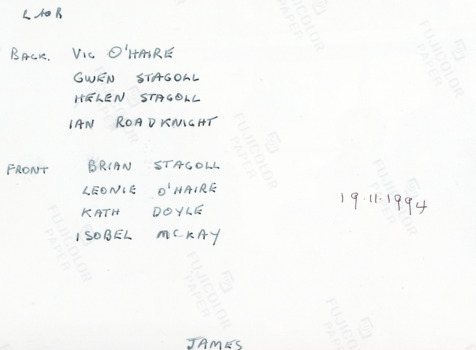 L A O R
BACK. VIC O'HAIRE
GWEN STAGOLL
HELEN STAGOLL
IAN ROADKNIGHT
FRONT BRIAN STAGOLL
LEONIE O'HAIRE
KATH DOYLE
ISOBEL MCKAY
19.11.1994
JAMES
FUJICOLOR
PAPER